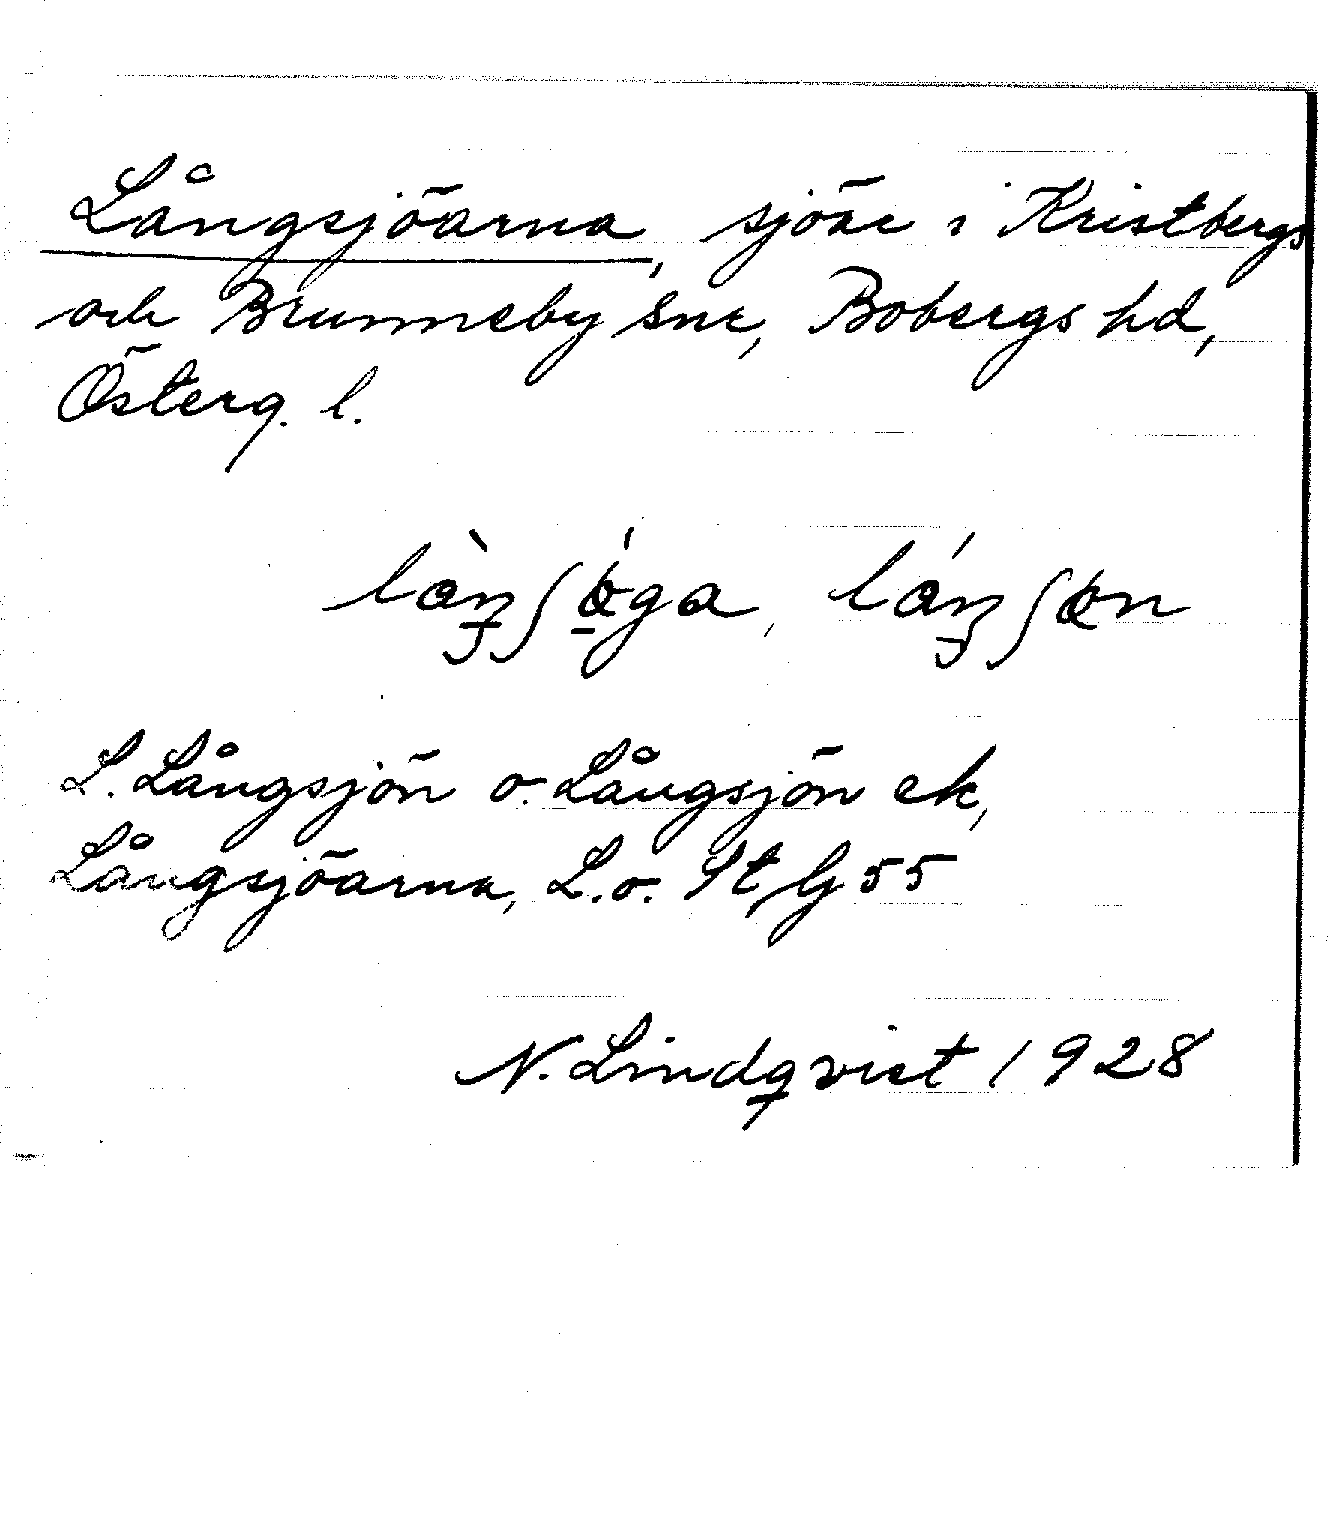 Långsjöarna, sjöar i Kristbergs
och Brunneby snr, Bobergs hd,
Österg. l.
L. Långsjön o. Långsjön ek,
Långsjöarna, L. o. St, G 55
N. Lindqvist 1928